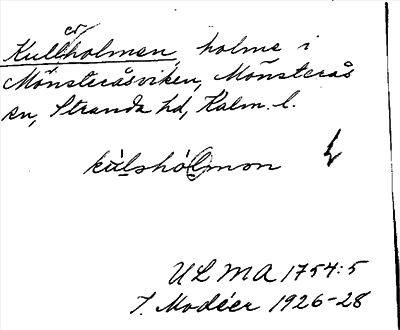 er
Kullholmen, holme i
Mönsteråsviken, Mönsterås
sn, Stranda hd, Kalm. l.
kùlshólmon
ULMA 1754:5
I. Modéer 1926-28